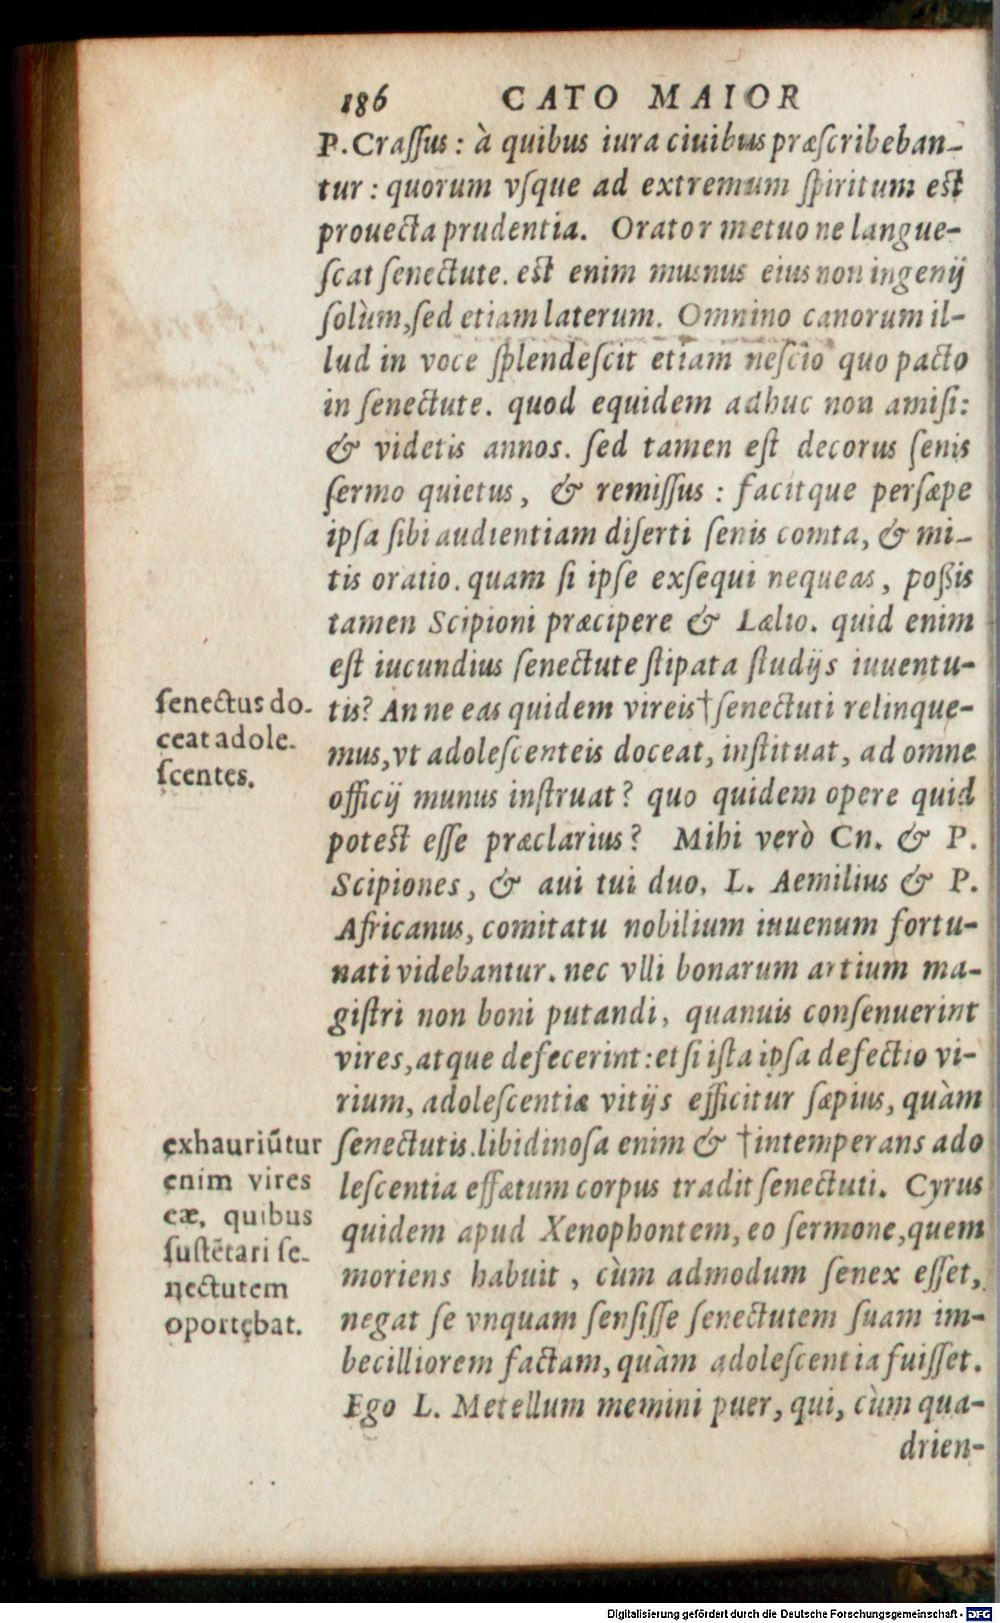 186 CATO MAIOR
P. Craſſus: à quibus iura ciuibus præſcribeban-
tur: quorum vſque ad extremum ſpiritum est
prouecta prudentia. Orator metuo ne langue-
ſcat ſenectute. est enim munus eius non ingenij
ſolùm, ſed etiam laterum. Omnino canorum il-
lud in voce ſplendeſcit etiam neſcio quo pacto
in ſenectute. quod equidem adhuc non amiſi:
& videtis annos. ſed tamen eſt decorus ſenis
ſermo quietus, & remiſſus: facitque perſæpe
ipſa ſibi audientiam diſerti ſenis comta, & mi-
tis oratio. quam ſi ipſe exſequi nequeas, poßis
tamen Scipioni præcipere & Lælio. quid enim
eſt iucundius ſenectute ſtipata ſtudijs iuuentu-
tis? An ne eas quidem vireis † ſenectuti relinque-
mus, vt adoleſcenteis doceat, inſtituat, ad omne
officij munus inſtruat? quo quidem opere quid
potest eſſe præclarius? Mihi verò Cn. & P.
Scipiones, & aui tui duo, L. Aemilius & P.
Africanus, comitatu nobilium iuuenum fortu-
nati videbantur. nec vlli bonarum artium ma-
giſtri non boni putandi, quanuis conſenuerint
vires, atque defecerint: etſi iſta ipſa defectio vi-
rium, adoleſcentiæ vitijs efficitur ſæpius, quàm
ſenectutis. libidinoſa enim & † intemperans ado
leſcentia effætum corpus tradit ſenectuti. Cyrus
quidem apud Xenophontem, eo ſermone, quem
moriens habuit, cùm admodum ſenex eſſet,
negat ſe vnquam ſenſiſſe ſenectutem ſuam im-
becilliorem factam, quàm adoleſcentia fuiſſet.
Ego L. Metellum memini puer, qui, cùm qua-
drien-
ſenectus do-
ceat adole-
ſcentes.
exhauriũtur
enim vires
eæ, quibus
ſuſtẽtari ſe-
nectutem
oportebat.
Digitalisierung gefördert durch die Deutsche Forschungsgemeinschaft - DFG